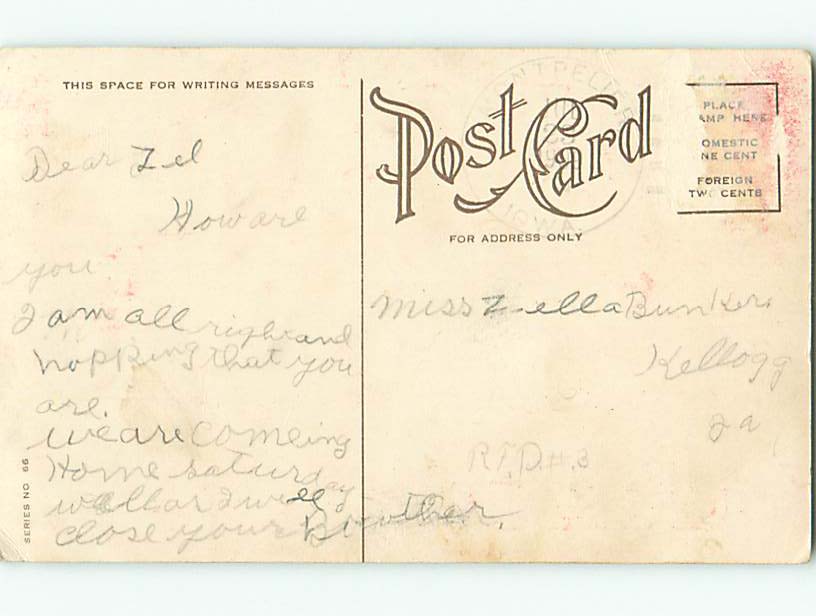 THIS SPACE FOR WRITING MESSAGES
Dear Zel
How are
you
I am all right and
hopping that you
are.
we are comeing
Home saturday
well as I will
close your Browther.
SERIES NO 66
Post Card
FOR ADDRESS ONLY
IOWA
PLACE
AMP HERE
OMESTIC
NE CENT
FOREIGN
TWO CENTS
Miss Zella Bunker
Kellogg
Ia
R.F.D.#.3